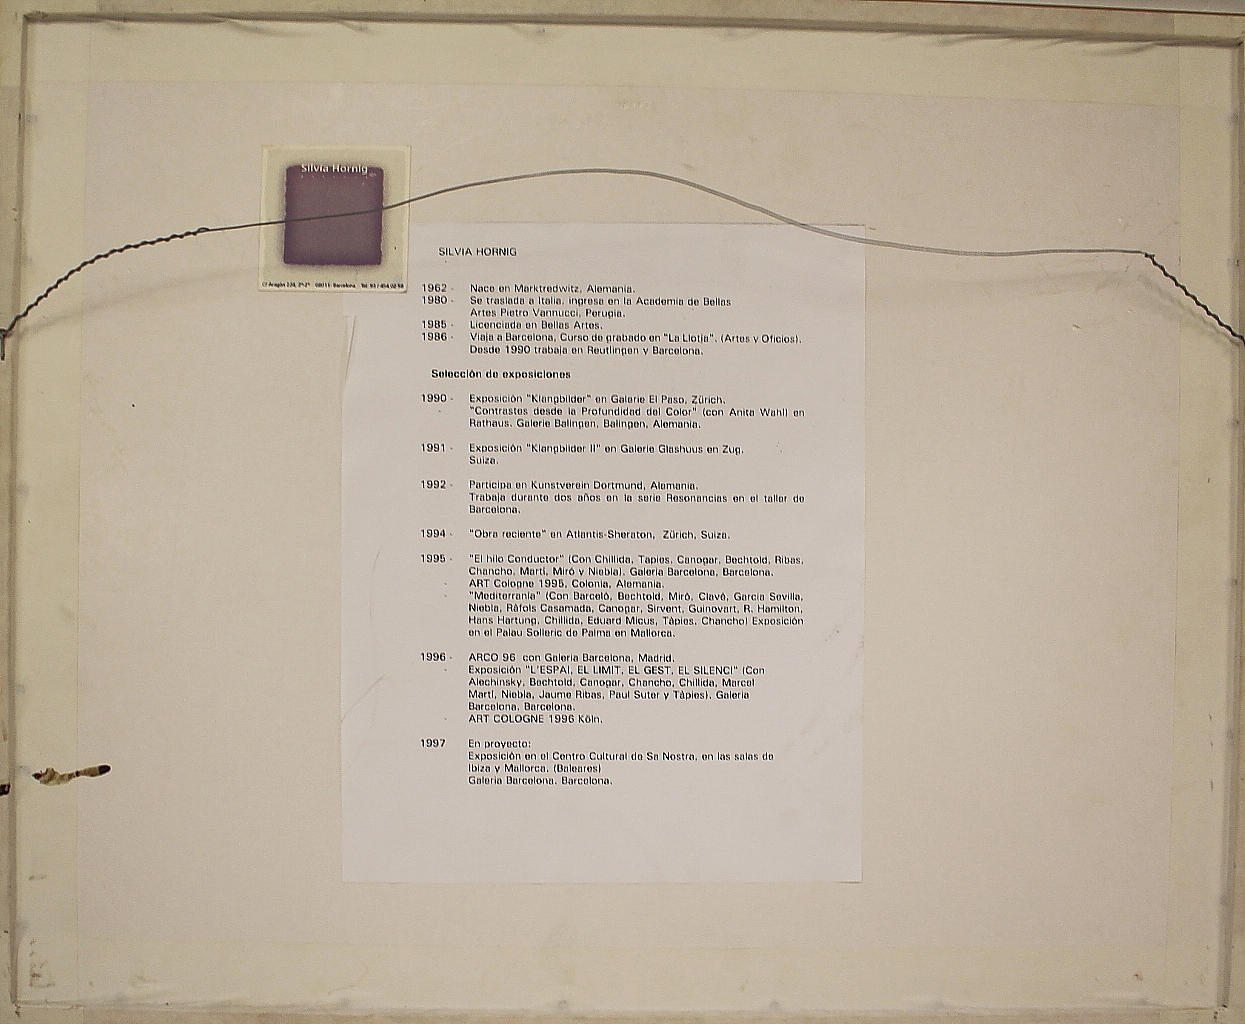 Silvia Hornig
C/ Aragón 224, 2º-2ª 08011- Barcelona. Tel: 93 / 454 02 58
SILVIA HORNIG
1962 - Nace en Marktredwitz, Alemania.
1980 - Se traslada a Italia, ingresa en la Academia de Bellas
Artes Pietro Vannucci, Perugia.
1985 - Licenciada en Bellas Artes.
1986 - Viaja a Barcelona, Curso de grabado en "La Llotja". (Artes y Oficios).
Desde 1990 trabaja en Reutlingen y Barcelona.
Selección de exposiciones
1990 - Exposición "Klangbilder" en Galerie El Paso, Zürich.
- "Contrastes desde la Profundidad del Color" (con Anita Wahl) en
Rathaus. Galerie Balingen, Balingen, Alemania.
1991 - Exposición "Klangbilder II" en Galerie Glashuus en Zug,
Suiza.
1992 - Participa en Kunstverein Dortmund, Alemania.
Trabaja durante dos años en la serie Resonancias en el taller de
Barcelona.
1994 - "Obra reciente" en Atlantis-Sheraton, Zürich, Suiza.
1995 - "El hilo Conductor" (Con Chillida, Tapies, Canogar, Bechtold, Ribas,
Chancho, Martí, Miró y Niebla). Galeria Barcelona, Barcelona.
- ART Cologne 1995, Colonia, Alemania.
- "Mediterrania" (Con Barceló, Bechtold, Miró, Clavé, Garcia Sevilla,
Niebla, Ràfols Casamada, Canogar, Sirvent, Guinovart, R. Hamilton,
Hans Hartung, Chillida, Eduard Micus, Tàpies, Chancho) Exposición
en el Palau Solleric de Palma en Mallorca.
1996 - ARCO 96 con Galeria Barcelona, Madrid.
- Exposición "L'ESPAI, EL LIMIT, EL GEST, EL SILENCI" (Con
Alechinsky, Bechtold, Canogar, Chancho, Chillida, Marcel
Martí, Niebla, Jaume Ribas, Paul Suter y Tàpies). Galeria
Barcelona, Barcelona.
- ART COLOGNE 1996 Köln.
1997 En proyecto:
Exposición en el Centro Cultural de Sa Nostra, en las salas de
Ibiza y Mallorca. (Baleares)
Galeria Barcelona. Barcelona.